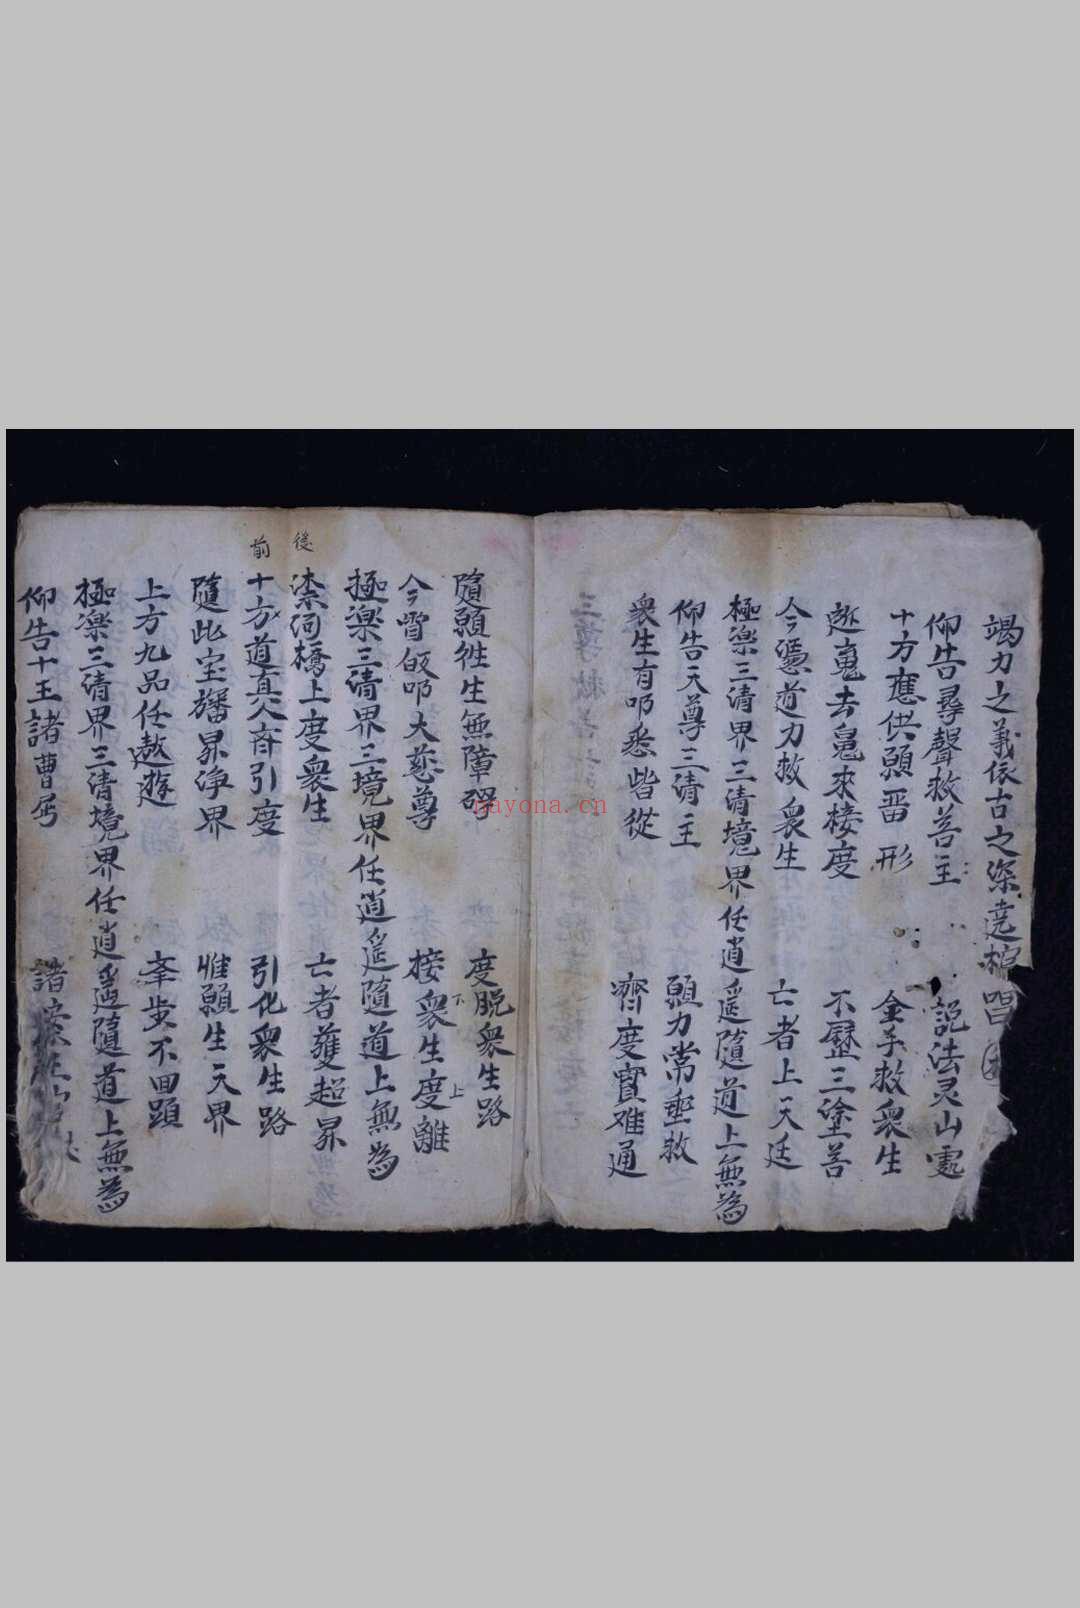 竭力之義依古之深
仰告尋聲救苦主 說法灵山處
十方應供願畱形 金手救衆生
逝冤去鬼來接度 不歷三塗苦
今憑道力救衆生 亡者上天廷
極楽三清界三清境界任逍遥隨道上無為
仰告天尊三清主 願力常垂救
衆生有叩悉皆從 濟度實难通
隨願徃生無障碍 度脫衆生路
今宵皈叩大慈尊 接衆生度離
下 上
極楽三清界三境界任逍遥隨道上無為
後
柰河橋上度衆生 亡者䕶超昇
前
十方道真人斉引度 引化衆生路
隨此宝旛昇净界 惟願生天界
上方九品任遨遊 步不回頭
極楽三清界三清境界任逍遥隨道上無為
仰告十王諸曹
nayona.cn